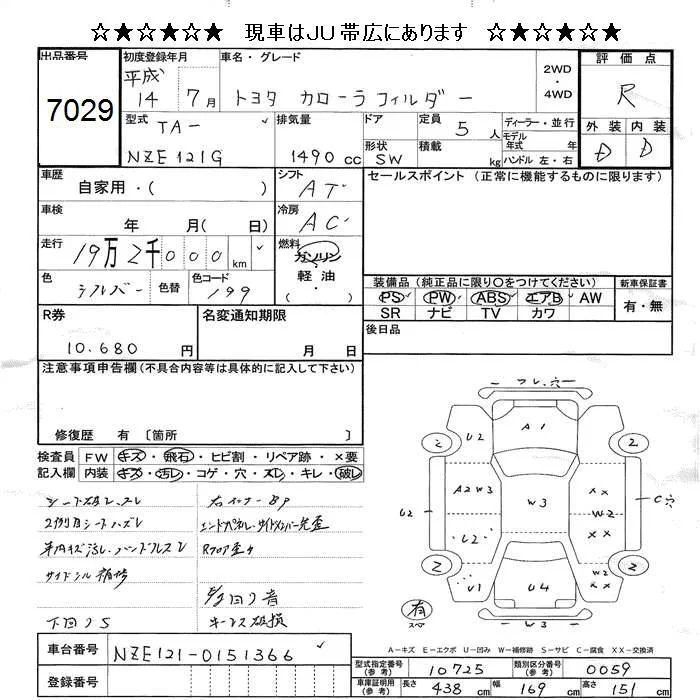 ☆★☆★☆★ 現車はJU帯広にあります ☆★☆★☆★
出品番号
7029
初度登録年月
平成
14 7月
車名・グレード
トヨタ カローラフィルダー
2WD
・
4WD
評価点
R
外装 内装
D D
型式 TA-
NZE121G
排気量
1490 cc
ドア
形状 SW
定員 5 人
積載 kg
ディーラー・並行
モデル
年式 年
ハンドル 左・右
車歴
自家用・( )
シフト
AT
車検
年 月( 日)
冷房
AC
走行 19万2千000 km
燃料
ガソリン
軽油
( )
色
シルバー
色替
色コード
199
セールスポイント (正常に機能するものに限ります)
装備品 (純正品に限り○をつけてください)
PS PW ABS エアB AW
SR ナビ TV カワ
新車保証書
有・無
後日品
R券
10.680 円
名変通知期限
月 日
注意事項申告欄 (不具合内容等は具体的に記入して下さい)
修復歴 有 〔箇所 〕
検査員
記入欄
FW キズ・飛石・ヒビ割・リペア跡・×要
内装 キズ・汚レ・コゲ・穴・スレ・キレ・破レ
シート破レ、スレ
2列目シートハズレ
車内キズ汚レ、ハンドルスレ
サイドシル補修
下回りS
右インナーBP
エンドパネル、サイドメンバー先歪
Rフロア歪み
キーレス破損
フレ、穴
A1
U2
2
2
A2 W3
W3
XX
W2
XX
U2
C穴
U2
2
2
U1
U4
W2
XX
有
スペア
W3
A-キズ E-エクボ U-凹み W-補修跡 S-サビ C-腐食 XX-交換済
車台番号
NZE121-0151366
登録番号
型式指定番号
(参考)
10725
類別区分番号
(参考)
0059
車庫証明用
(参考)
長さ 438 cm 幅 169 cm 高さ 151 cm